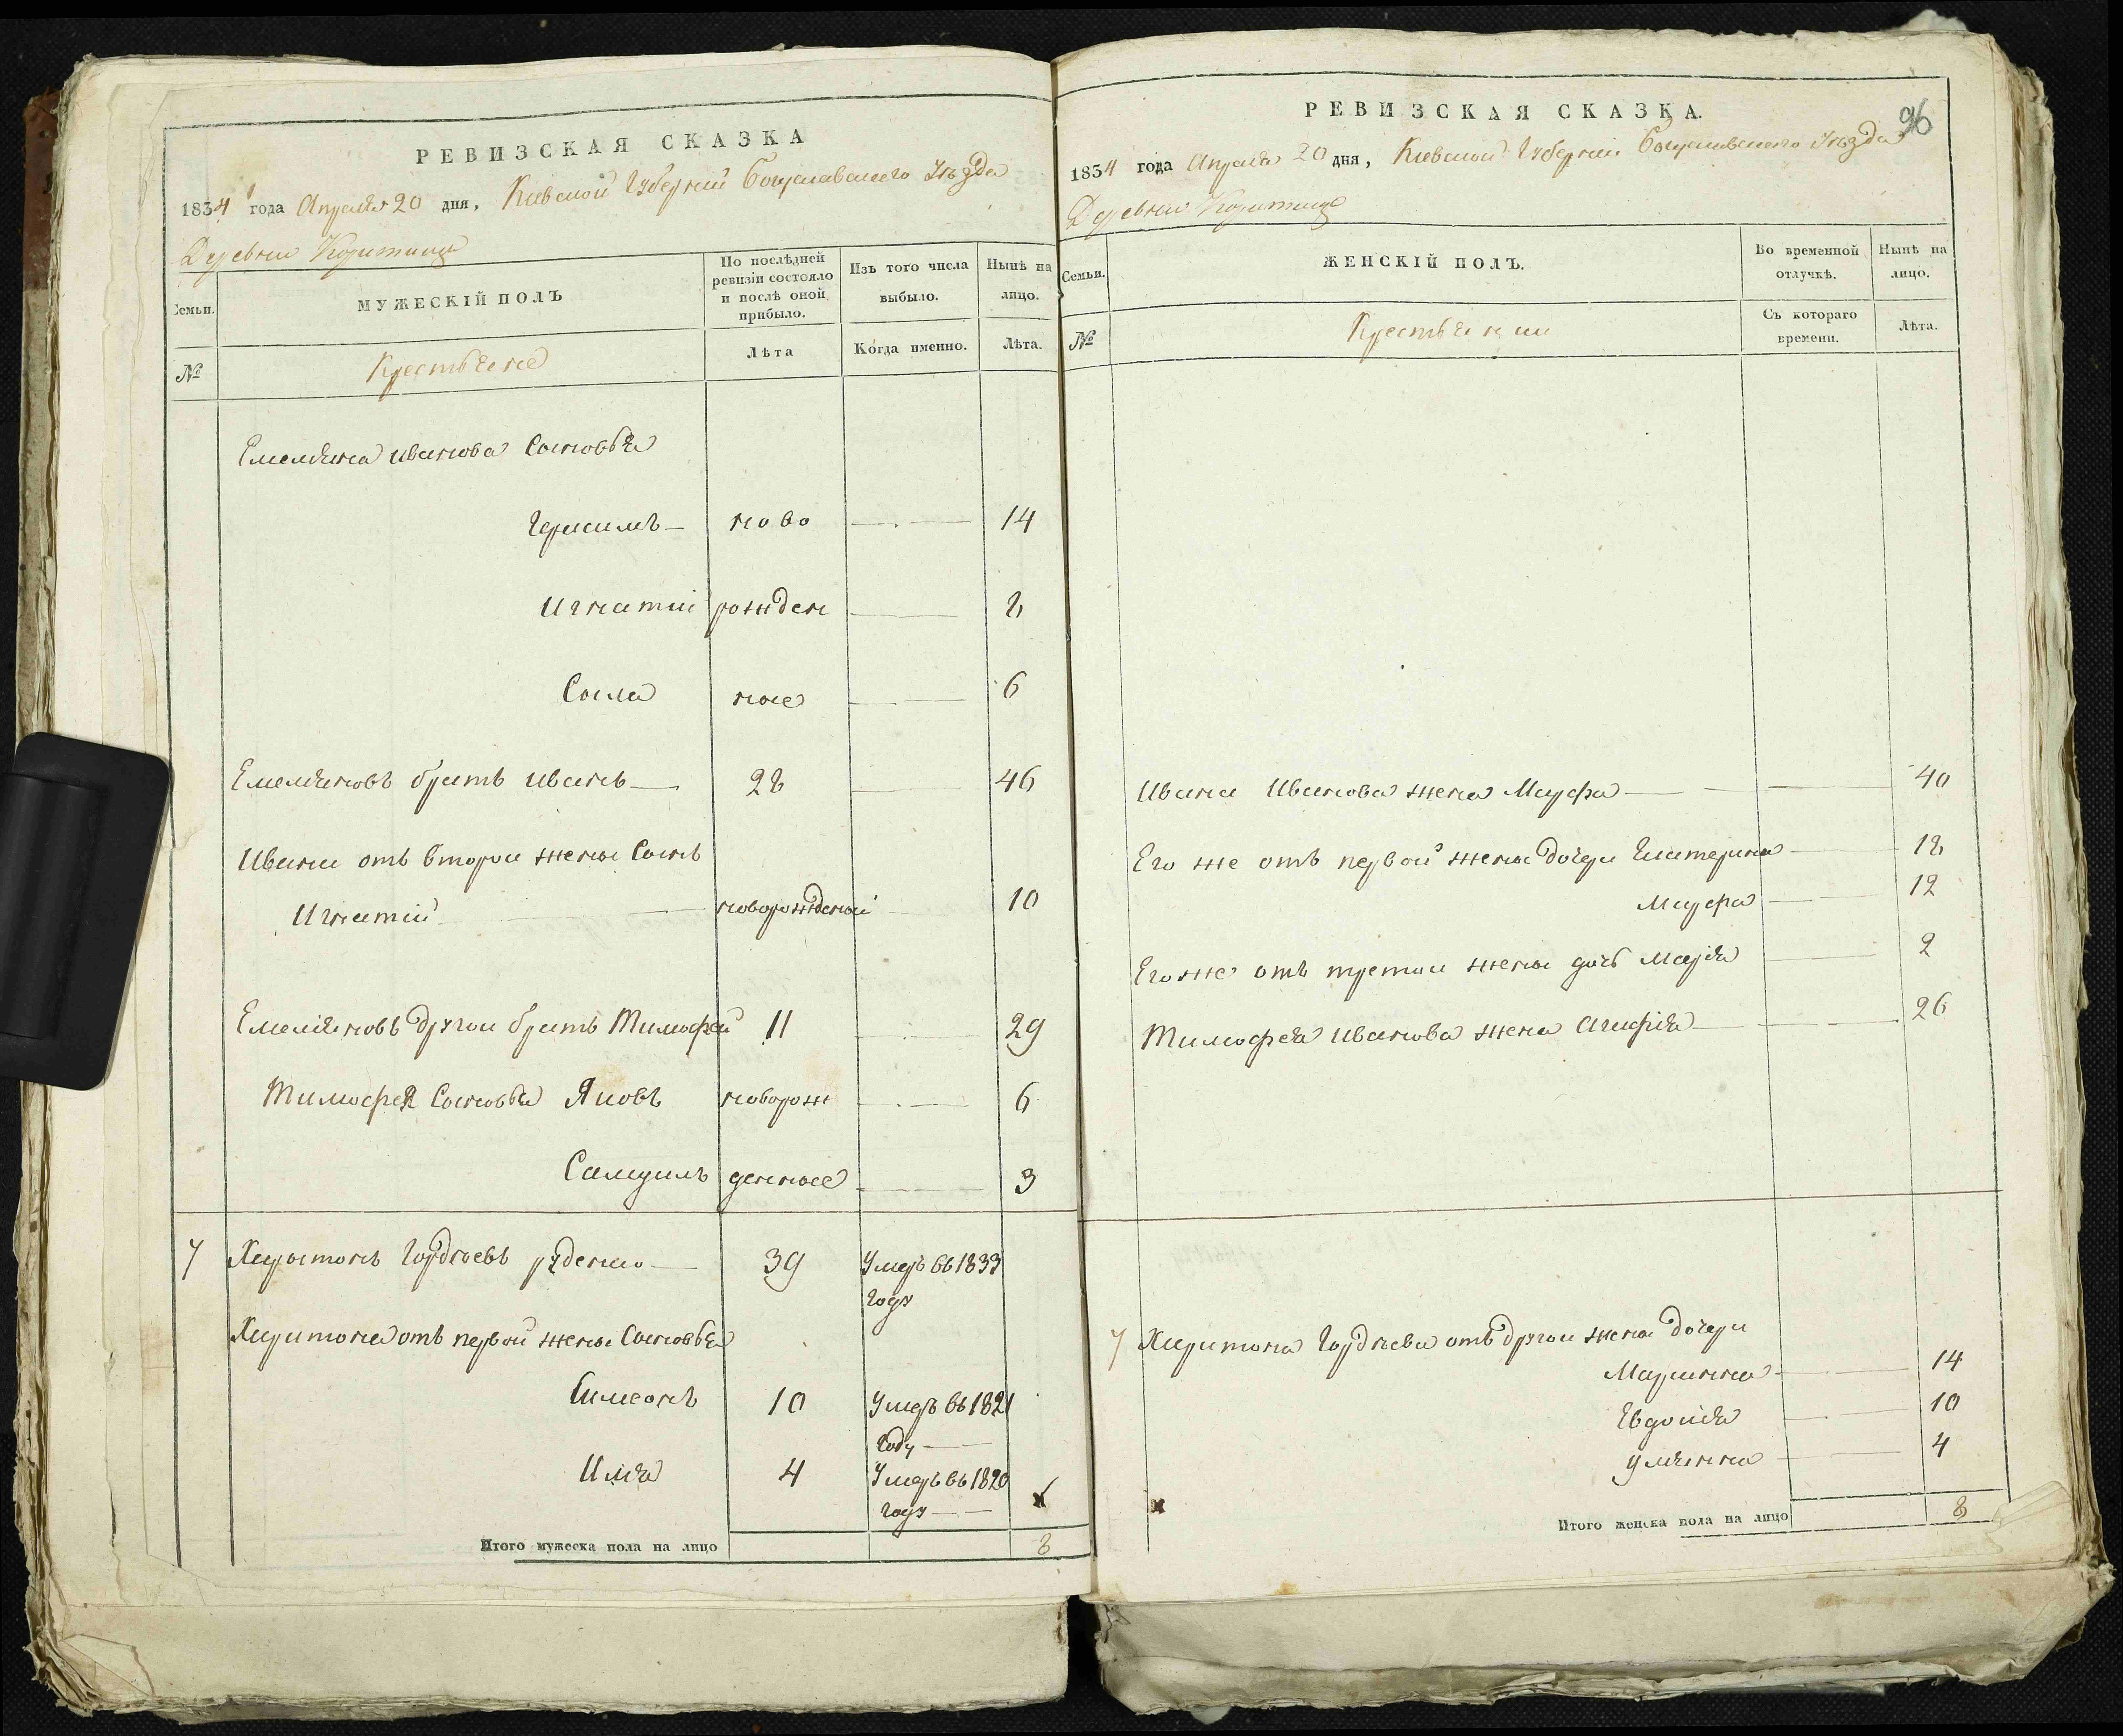 РЕВИЗСКАЯ СКАЗКА
1834 года Апреля 20 дня, Киевской Губернии Богуславского Уезда
Деревни
Семьи.
МУЖЕСКІЙ ПОЛЪ
По послѣдней ревизіи состояло и послѣ оной прибыло.
Изъ того числа выбыло.
Нынѣ на лицо.
№
Крестьяне
Лѣта
Когда именно.
Лѣта.
Емельяна иванова Сыновья
Герасимъ — ново — 14
Игнатий рожден — 8
Сыла ные — 6
Емельяновъ братъ иванъ — 28 — 46
Ивана отъ второй жены Сынъ
Игнатий — новорожденый — 10
Емельяновъ другой братъ Тимофей 11 — 29
Тимофея Сыновья Яковъ новорож — 6
Самуилъ денные — 3
7 Харытонъ Гордѣевъ руденко — 39 Умеръ въ 1833
году
Харитона отъ первой жены Сыновья
Симеонъ 10 Умеръ въ 1821
году —
Илья 4 Умеръ въ 1820
году —
Итого мужеска пола на лицо 8
96
РЕВИЗСКАЯ СКАЗКА.
1834 года Апреля 20 дня, Киевской Губернии Богуславского Уезда
Деревни
Семьи.
ЖЕНСКІЙ ПОЛЪ.
Во временной отлучкѣ.
Нынѣ на лицо.
№
Крестьянки
Съ котораго времени.
Лѣта.
Ивана Иванова жена Марфа — 40
Его же отъ первой жены дочери Екатерина — 18
Марфа — 12
Его же отъ третии жены дочь Марія — 2
Тимофея иванова жена Агафія — 26
7 Харитона Гордѣева отъ другои жены дочери
Маринна — 14
Евдокія — 10
Улянна — 4
Итого женска пола на лицо 8